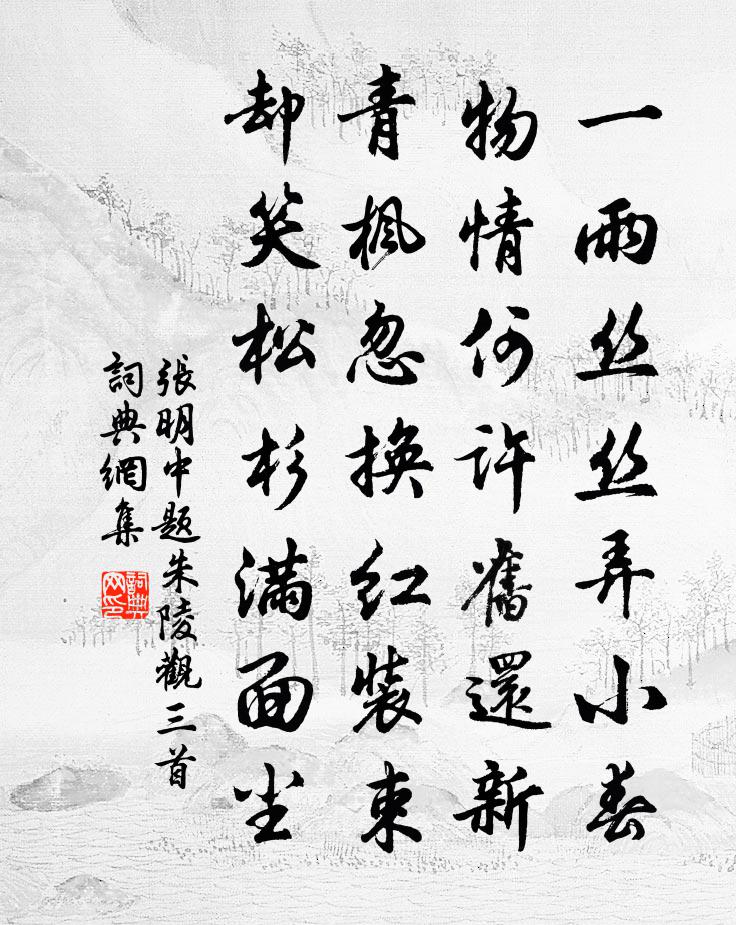 一雨丝丝弄小春
物情何许舊還新
青楓忽换红装束
却笑松杉满面尘
張明中題朱陵觀三首
詞典網集
詞典網印